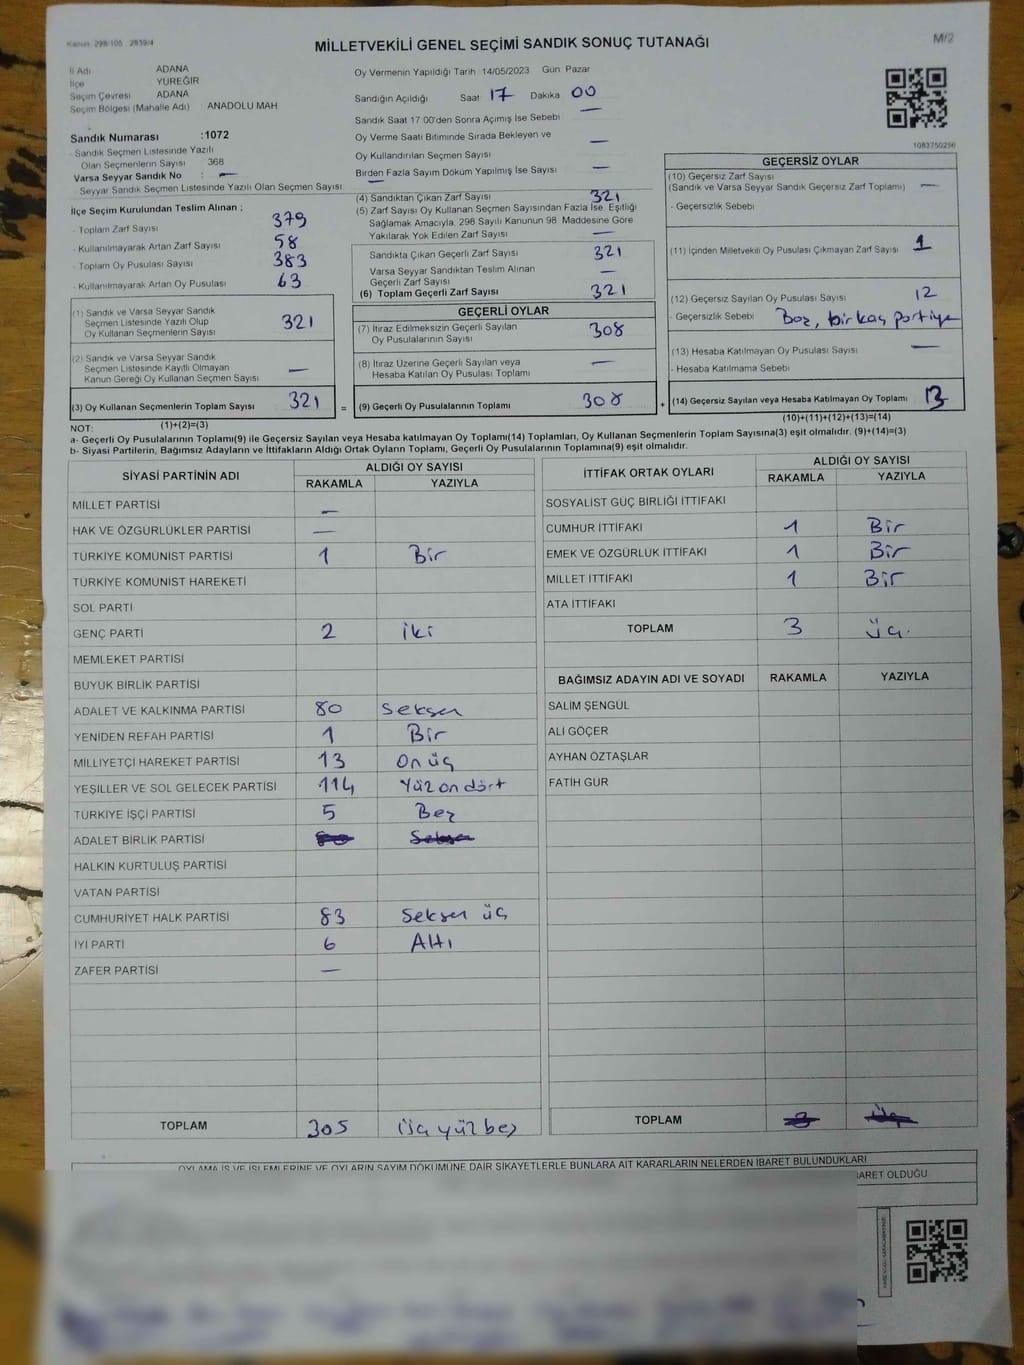 Kanun 298/105 2839/4
MİLLETVEKİLİ GENEL SEÇİMİ SANDIK SONUÇ TUTANAĞI
M/2
İl Adı ADANA
İlçe YÜREĞİR
Seçim Çevresi ADANA
Seçim Bölgesi (Mahalle Adı) ANADOLU MAH
Sandık Numarası :1072
- Sandık Seçmen Listesinde Yazılı
Olan Seçmenlerin Sayısı 368
Varsa Seyyar Sandık No : —
- Seyyar Sandık Seçmen Listesinde Yazılı Olan Seçmen Sayısı —
İlçe Seçim Kurulundan Teslim Alınan ;
- Toplam Zarf Sayısı 379
- Kullanılmayarak Artan Zarf Sayısı 58
- Toplam Oy Pusulası Sayısı 383
- Kullanılmayarak Artan Oy Pusulası 63
(1) Sandık ve Varsa Seyyar Sandık
Seçmen Listesinde Yazılı Olup
Oy Kullanan Seçmenlerin Sayısı 321
(2) Sandık ve Varsa Seyyar Sandık
Seçmen Listesinde Kayıtlı Olmayan
Kanun Gereği Oy Kullanan Seçmen Sayısı —
(3) Oy Kullanan Seçmenlerin Toplam Sayısı 321 =
(1)+(2)=(3)
Oy Vermenin Yapıldığı Tarih 14/05/2023 Gün Pazar
Sandığın Açıldığı Saat 17 Dakika 00
Sandık Saat 17 00'den Sonra Açımış İse Sebebi —
Oy Verme Saati Bitiminde Sırada Bekleyen ve
Oy Kullandırılan Seçmen Sayısı —
Birden Fazla Sayım Döküm Yapılmış İse Sayısı —
(4) Sandıktan Çıkan Zarf Sayısı 321
(5) Zarf Sayısı Oy Kullanan Seçmen Sayısından Fazla İse, Eşitliği
Sağlamak Amacıyla, 298 Sayılı Kanunun 98. Maddesine Göre
Yakılarak Yok Edilen Zarf Sayısı —
Sandıkta Çıkan Geçerli Zarf Sayısı 321
Varsa Seyyar Sandıktan Teslim Alınan
Geçerli Zarf Sayısı —
(6) Toplam Geçerli Zarf Sayısı 321
GEÇERLİ OYLAR
(7) İtiraz Edilmeksizin Geçerli Sayılan
Oy Pusulalarının Sayısı 308
(8) İtiraz Üzerine Geçerli Sayılan veya
Hesaba Katılan Oy Pusulası Toplamı —
(9) Geçerli Oy Pusulalarının Toplamı 308 +
1083750256
GEÇERSİZ OYLAR
(10) Geçersiz Zarf Sayısı
(Sandık ve Varsa Seyyar Sandık Geçersiz Zarf Toplamı) —
- Geçersizlik Sebebi
(11) İçinden Milletvekili Oy Pusulası Çıkmayan Zarf Sayısı 1
(12) Geçersiz Sayılan Oy Pusulası Sayısı 12
- Geçersizlik Sebebi Boz, birkaç partiye
(13) Hesaba Katılmayan Oy Pusulası Sayısı —
- Hesaba Katılmama Sebebi
(14) Geçersiz Sayılan veya Hesaba Katılmayan Oy Toplamı 13
(10)+(11)+(12)+(13)=(14)
NOT:
a- Geçerli Oy Pusulalarının Toplamı(9) ile Geçersiz Sayılan veya Hesaba katılmayan Oy Toplamı(14) Toplamları, Oy Kullanan Seçmenlerin Toplam Sayısına(3) eşit olmalıdır. (9)+(14)=(3)
b- Siyasi Partilerin, Bağımsız Adayların ve İttifakların Aldığı Ortak Oyların Toplamı, Geçerli Oy Pusulalarının Toplamına(9) eşit olmalıdır.
SİYASİ PARTİNİN ADI ALDIĞI OY SAYISI
RAKAMLA YAZIYLA
MİLLET PARTİSİ —
HAK VE ÖZGÜRLÜKLER PARTİSİ —
TÜRKİYE KOMÜNİST PARTİSİ 1 Bir
TÜRKİYE KOMÜNİST HAREKETİ
SOL PARTİ
GENÇ PARTİ 2 iki
MEMLEKET PARTİSİ
BÜYÜK BİRLİK PARTİSİ
ADALET VE KALKINMA PARTİSİ 80 Seksen
YENİDEN REFAH PARTİSİ 1 Bir
MİLLİYETÇİ HAREKET PARTİSİ 13 On üç
YEŞİLLER VE SOL GELECEK PARTİSİ 114 Yüz on dört
TÜRKİYE İŞÇİ PARTİSİ 5 Beş
ADALET BİRLİK PARTİSİ
HALKIN KURTULUŞ PARTİSİ
VATAN PARTİSİ
CUMHURİYET HALK PARTİSİ 83 Seksen üç
İYİ PARTİ 6 Altı
ZAFER PARTİSİ —
TOPLAM 305 Üç yüz beş
İTTİFAK ORTAK OYLARI ALDIĞI OY SAYISI
RAKAMLA YAZIYLA
SOSYALİST GÜÇ BİRLİĞİ İTTİFAKI
CUMHUR İTTİFAKI 1 Bir
EMEK VE ÖZGÜRLÜK İTTİFAKI 1 Bir
MİLLET İTTİFAKI 1 Bir
ATA İTTİFAKI
TOPLAM 3 üç.
BAĞIMSIZ ADAYIN ADI VE SOYADI RAKAMLA YAZIYLA
SALİM ŞENGÜL
ALİ GÖÇER
AYHAN ÖZTAŞLAR
FATİH GÜR
TOPLAM 3 Üç
OYLAMA İŞ VE İŞLEMLERİNE VE OYLARIN SAYIM DÖKÜMÜNE DAİR ŞİKAYETLERLE BUNLARA AİT KARARLARIN NELERDEN İBARET BULUNDUKLARI
İBARET OLDUĞU